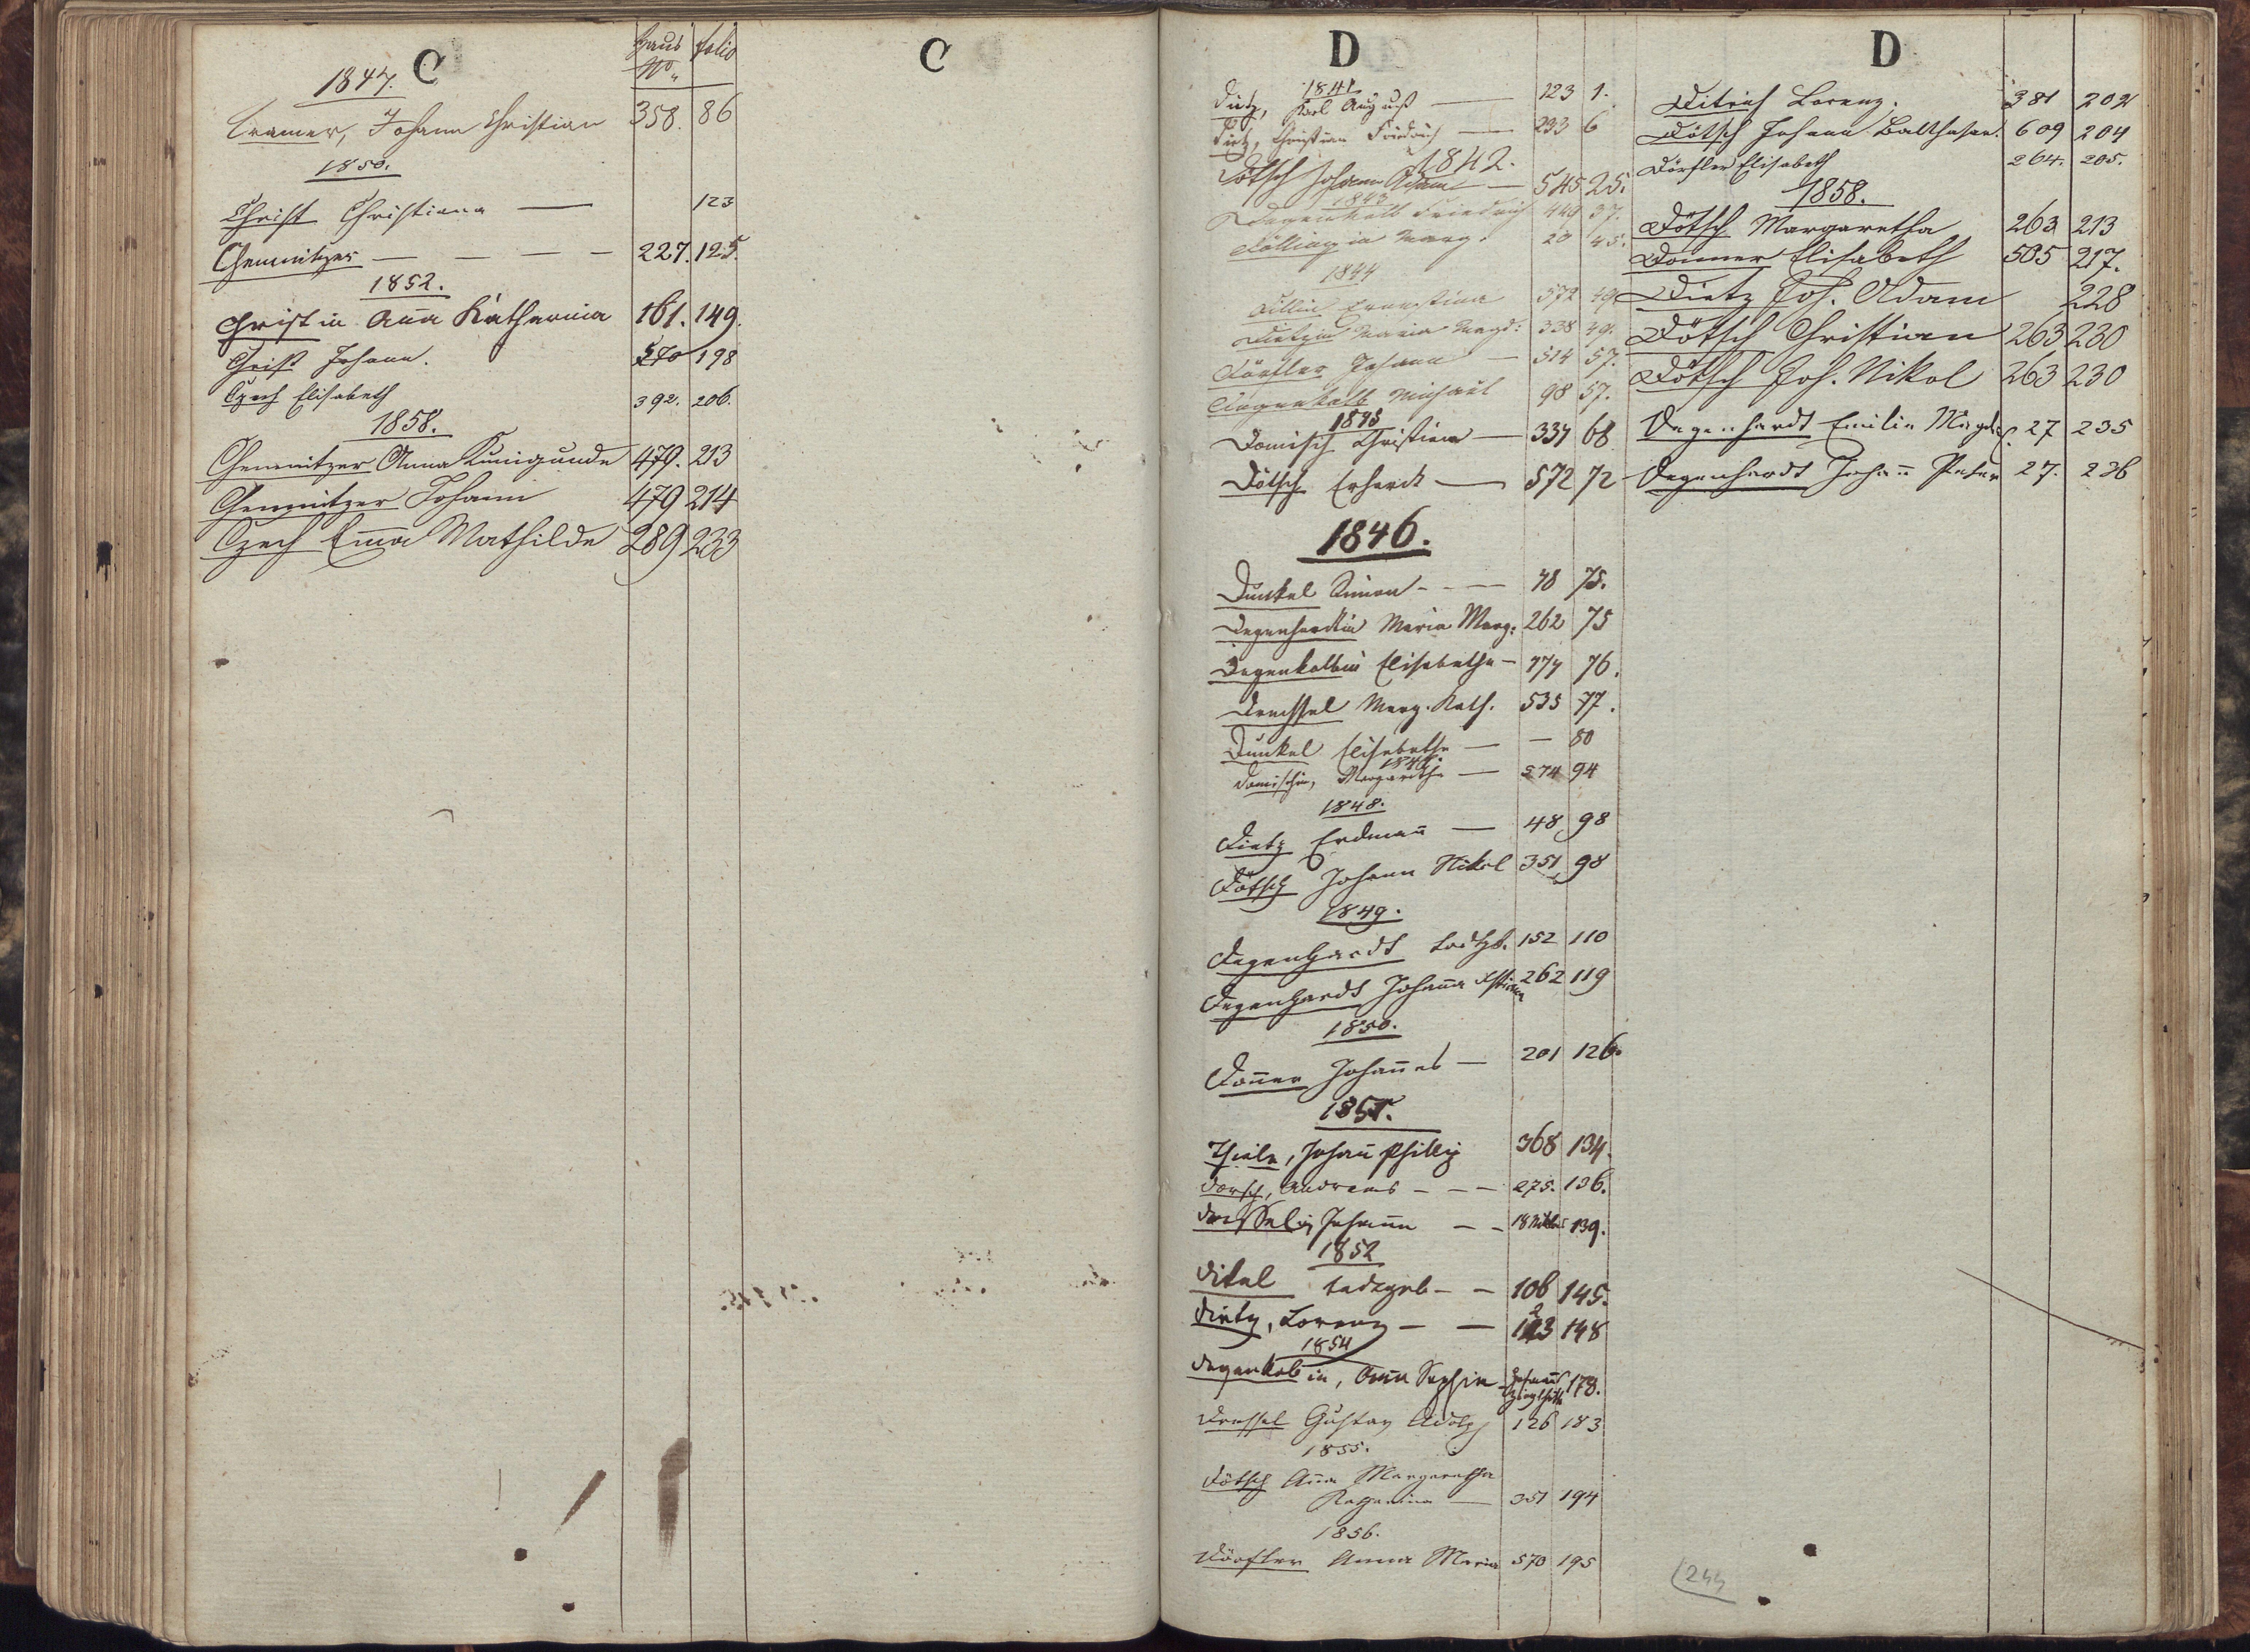 C
Haus No folio
1847.
Cramer, Johann Christian 358. 86
1850.
Christ Christiana — 123
Chemnitzer — — — — 227. 125.
1852.
Christ in Aña Katharina 161. 149.
Christ Johann. 570 198
Czech Elisabeth 392. 206.
1858.
Chemnitzer Anna Kunigunde 479. 213
Chemnitzer Johann 479 214
Czech Em̄a Mathilde 289 233
C
D
1841
Dietz, Karl August — 123 1.
Dietz, Christian Friedrich — 233 6
1842.
Dötsch Johann Adam — 545 25.
1843
Degenkolb Friedrich 449 37.
Döllingin Marg. 20 45.
1844
Dillin Ernestina 572 49
Dietzin Maria Magd: 338 49.
Dörfler Johann — 514 57.
Degenkolb Michael 98 57.
1845
Domisch Christian — 334 68
Dötsch Erhardt — 572 72
1846.
Dunkel Simon - - — 48 75.
Degenhardtin Maria Marg: 262 75
Degenkolbin Elisabetha — 474 76.
Drechsel Marg. Kath. 535 77.
Dunkel Elisabetha — — 80
1847.
Domischin, Margaretha — 574 94
1848.
Dietz Erdmañ — 48 98
Dötsch Johann Nikol 351 98
1849.
Degenhardt todtgb. 152 110
Degenhardt Johan̄a 262 119
1850.
Don̄er Johan̄es — 201 126.
1851.
Thiele, Johan̄ Phillip 368 134.
Dorsch, Andreas - — — 275. 136.
Johann — — 18 139.
1852
Ditel todtgeb - — 106 145.
2
Dietz, Lorenz — — 123 148
1854
Degenkolb in, Anna Sophia 178.
Dressel Gustav Adolph 126 183
1855.
Dötsch An̄a Margaretha
Katharina — 351 194
1856.
Dörfler Anna Maria 570 195
D
Ditrich Lorenz. 381 202
Dötsch Johann Balthasar. 609 204
Dörfler Elisabeth 264. 205.
1858.
Dötsch Margaretha 263 213
Donner Elisabeth 505 217.
Dietz Joh. Adam 228
Dötsch Christian 263 230
Dötsch Joh. Nikol 263 230
Degenhardt Emilie Magd. 27 235
Degenhardt Johañ Peter 27. 236
244